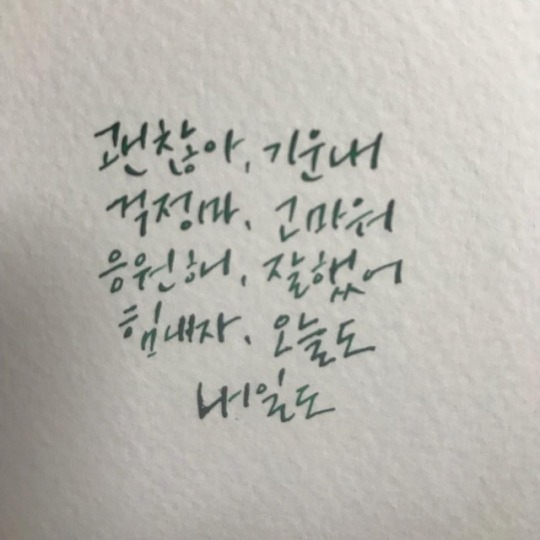 괜찮아, 기운내
걱정마, 고마워
응원해, 잘했어
힘내자, 오늘도
내일도